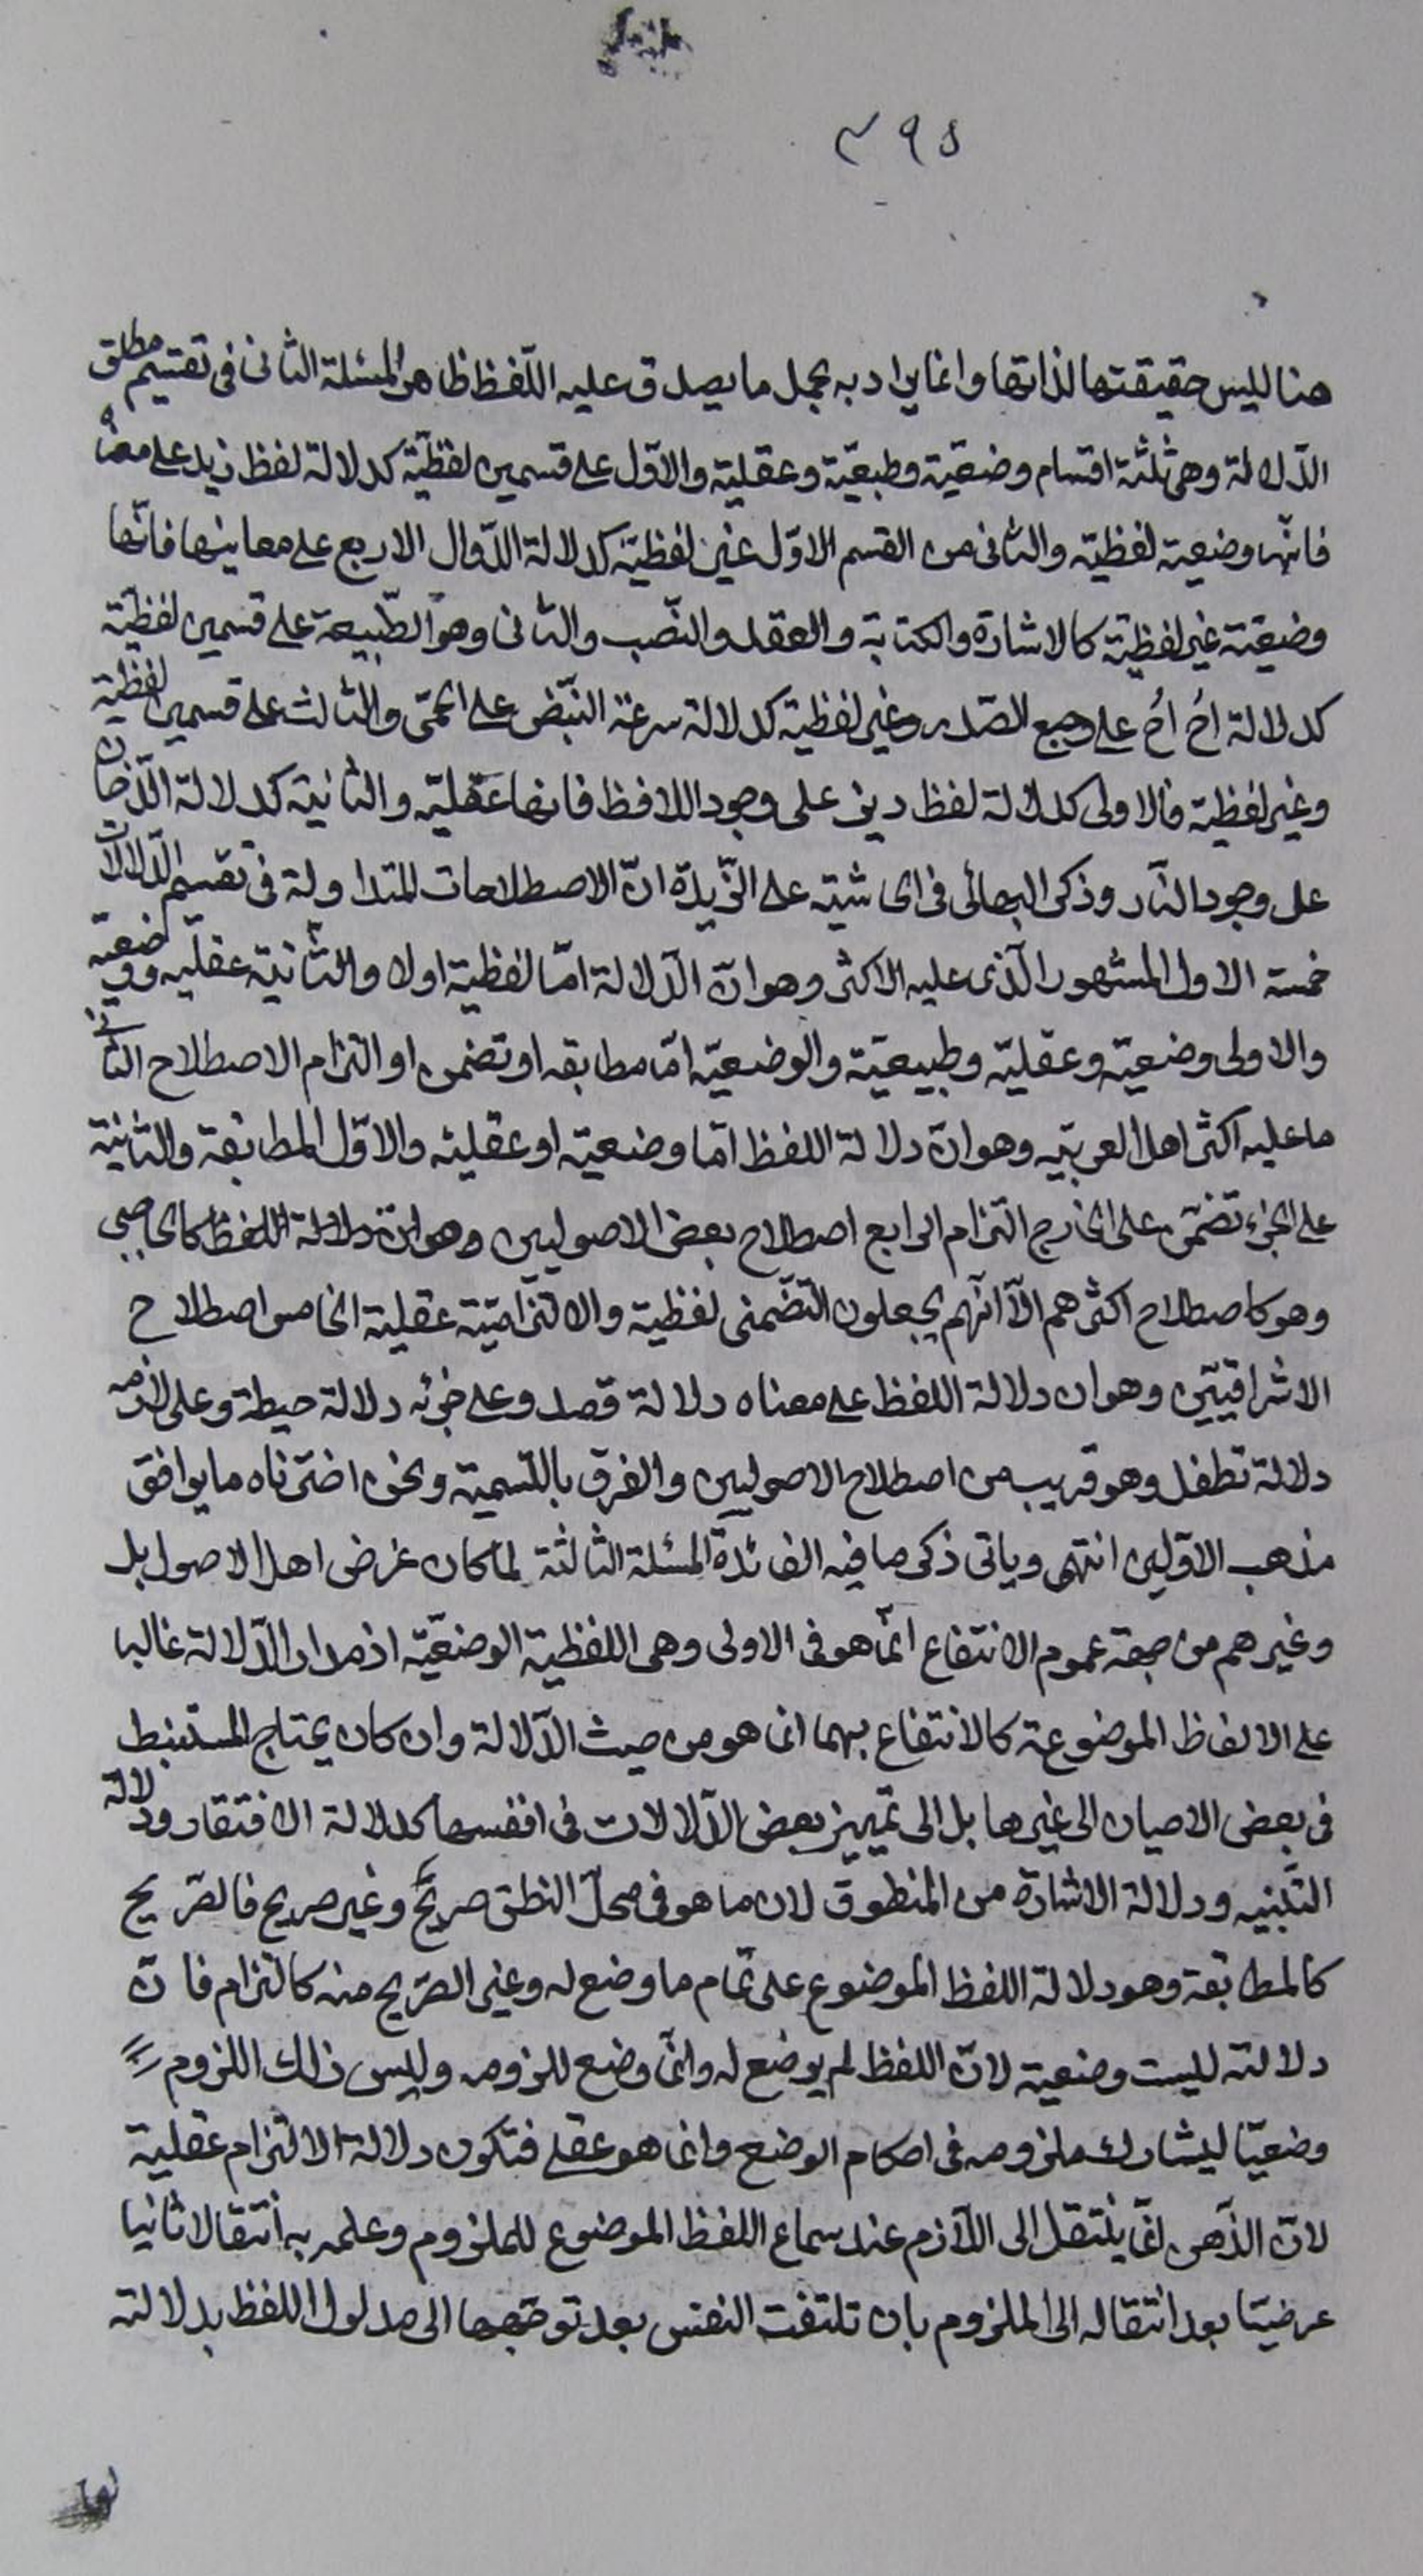 ٣٩٥
هنا ليس حقيقتها لذاتها وانما يراد به مجمل ما يصدق عليه اللّفظ ظاهرا المسئلة الثانى فى تقسيم مطلق
الدّلالة وهى ثلثة اقسام وضعيّة وطبعيّة وعقلية والاوّل على قسمين لفظيّة كدلالة لفظ زيد على معناه
فانّها وضعية لفظيّة والثانى من القسم الاوّل غير لفظيّة كدلالة الدّوال الاربع على معانيها فانّها
وضعيّة غير لفظيّة كالاشارة والكتابة والعقد والنّصب والثانى وهو الطّبيعة على قسمين لفظيّة
كدلالة اُح اُح على وجع الصّدر وغير لفظية كدلالة سرعة النّبض على الحمّى والثالث على قسمين لفظيّة
وغير لفظية فالاولى كدلالة لفظ ديز على وجود اللافظ فانها عقليّة والثانية كدلالة الدّخان
على وجود النّار وذكر البهائى فى الحاشية على الزّبدة انّ الاصطلاحات المتداولة فى تقسيم الدّلالات
خمسة الاول المشهور الّذى عليه الاكثر وهو انّ الدّلالة امّا لفظية اولا والثّانية عقليّة ووضعيّة
والاولى وضعيّة وعقليّة وطبيعيّة والوضعيّة امّا مطابقه او تضمن او التزام الاصطلاح الثانى
ما عليه اكثر اهل العربيّه وهو انّ دلالة اللفظ امّا وضعيّة او عقليّه والاوّل المطابقة والثانية
على الجزء تضمّن على الخارج التزام الرابع اصطلاح بعض الاصوليين وهو انّ دلالة اللفظ كالحاجبى
وهو كاصطلاح اكثرهم الّا انّهم يجعلون التّضمنى لفظية والالتزاميّة عقلية الخامس اصطلاح
الاشراقيّين وهو ان دلالة اللفظ على معناه دلالة قصد وعلى جزئه دلالة حيطة وعلى لازمه
دلالة تطفل وهو قريب من اصطلاح الاصوليين والفرق بالتّسمية ونحن اخترناه ما يوافق
مذهب الاوّلين انتهى وياتى ذكر ما فيه الفائدة المسئلة الثالثة لما كان غرض اهل الاصول بل
وغيرهم من جهة عموم الانتفاع انّما هو فى الاولى وهى اللفظية الوضعيّة اذ مدار الدّلالة غالبا
على الالفاظ الموضوعة كالانتفاع بهما انما هو من حيث الدّلالة وان كان يحتاج المستنبط
فى بعض الاحيان الى غيرها بل الى تمييز بعض الدّلالات فى انفسها كدلالة الافتقار ودلالة
التّنبيه ودلالة الاشارة من المنطوق لان ما هو فى محلّ النطق صريح وغير صريح فالصّريح
كالمطابقة وهو دلالة اللفظ الموضوع على تمام ما وضع له وغير الصّريح منه كالتزام فانّ
دلالته ليست وضعية لانّ اللفظ لم يوضع له وانّما وضع للزومه وليس ذلك اللزوم
وضعيّا ليشارك ملزومه فى احكام الوضع وانما هو عقلى فتكون دلالة الالتزام عقلية
لانّ الذّهن انّما ينتقل الى اللّازم عند سماع اللفظ الموضوع للملزوم وعلمه به انتقالا ثانيا
عرضيّا بعد انتقاله الى الملزوم بان تلتفت النفس بعد توجّهها الى مدلول اللفظ بدلالته